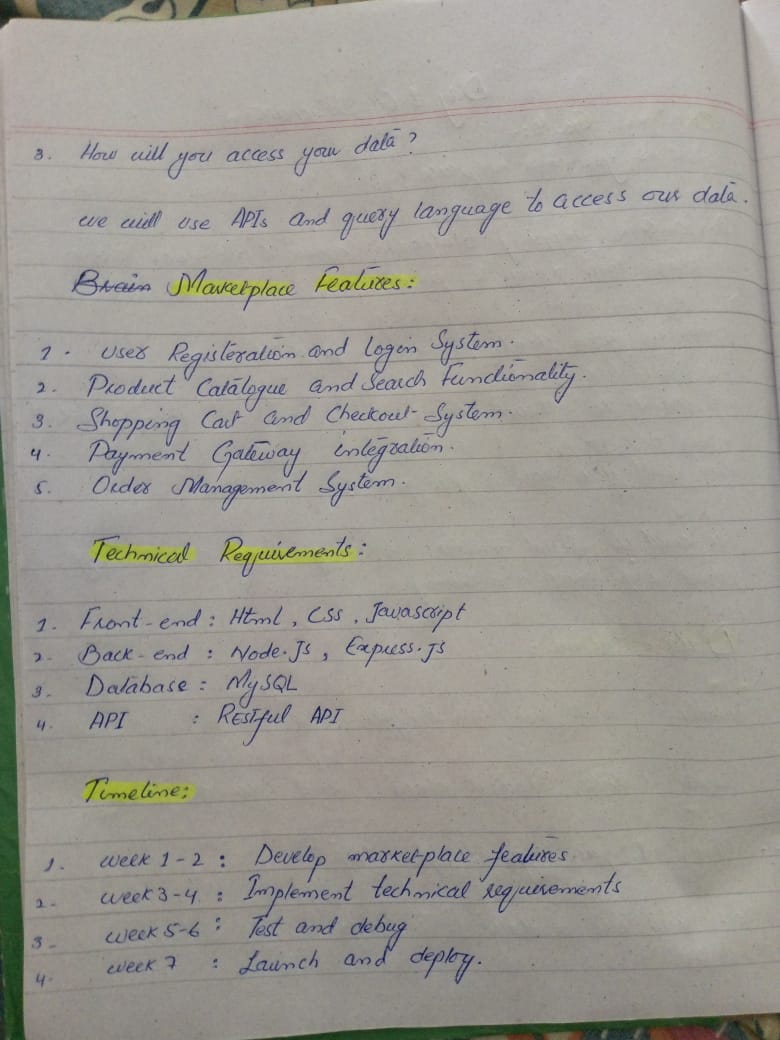 3. How will you access your data?
we will use APIs and query language to access our data.
Brain Marketplace Features:
1. User Registeration and login System.
2. Product Catalogue and Search Functionality.
3. Shopping Cart and Checkout System.
4. Payment Gateway integration.
5. Order Management System.
Technical Requirements:
1. Front-end : Html, Css, Javascript
2. Back-end : Node.Js, Express.js
3. Database : MySQL
4. API : RESTful API
Timeline:
1. week 1-2 : Develop marketplace features
2. week 3-4 : Implement technical requirements
3- week 5-6 : Test and debug
4. week 7 : Launch and deploy.